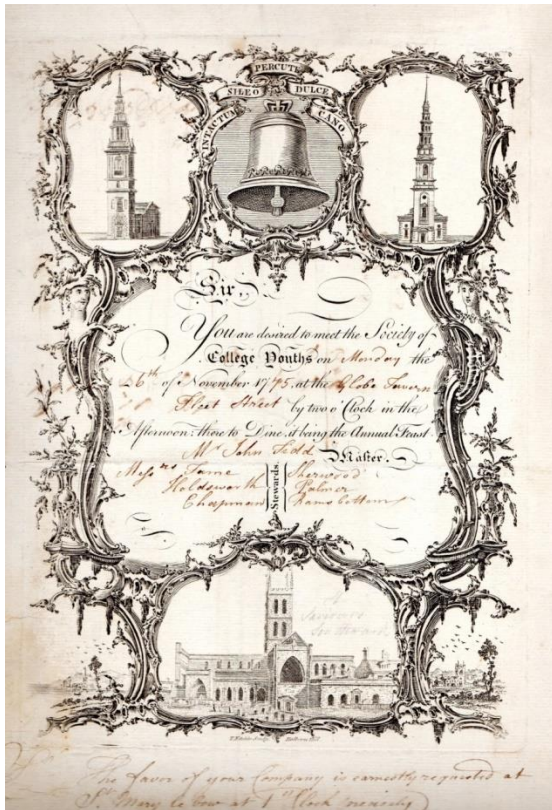 PERCUTE
SILEO DULCE
INTACTUM CANO
Sir,
You are desired to meet the Society of
College Youths on Monday the
16th of November 1795, at the Globe Tavern
Fleet Street by two o'Clock in the
Afternoon: there to Dine, it being the Annual Feast
Mr John Master.
Messrs Sherwood
Holdsworth Stewards. Palmer
Chapman Ramsbottom
St
Saviours
Southwark
The favor of your Company is earnestly requested at
St Mary le bow at 1 o'Clock precisely